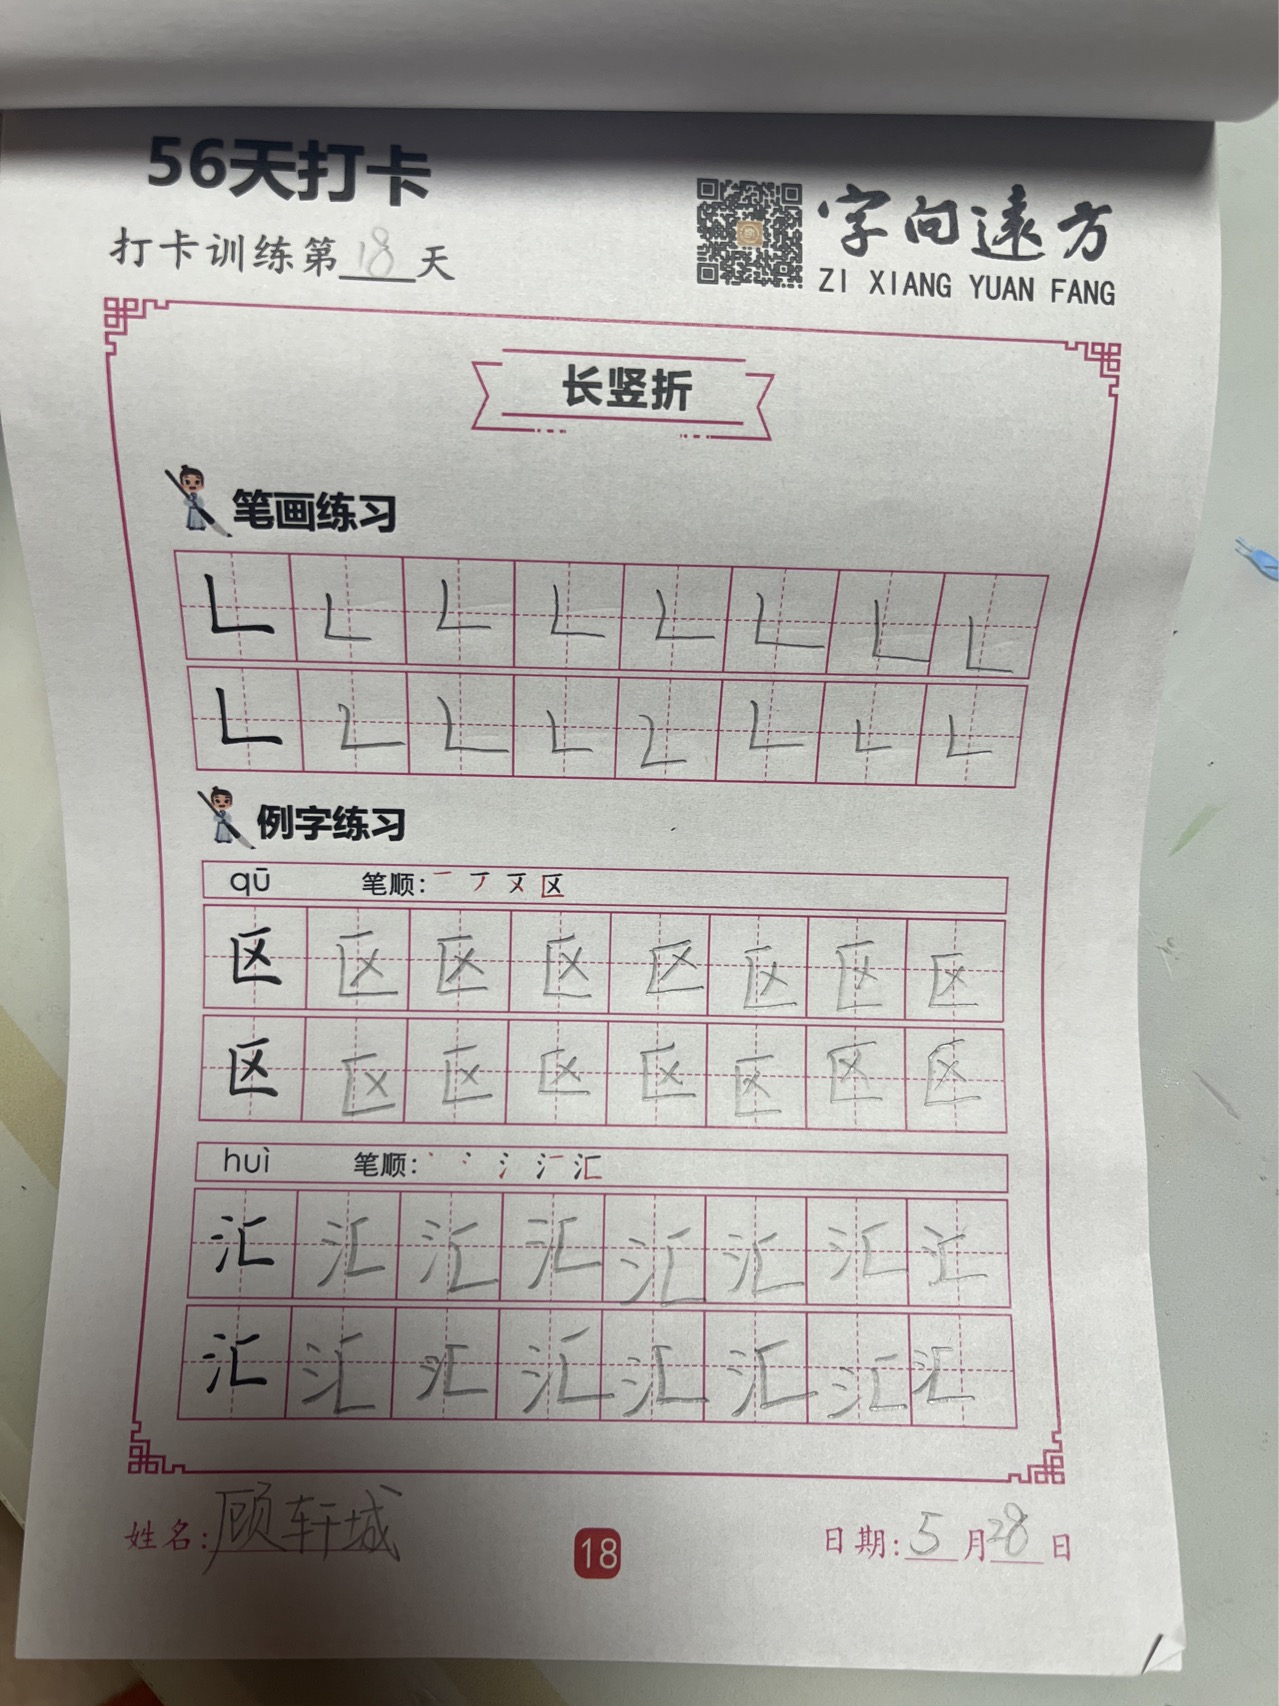 56天打卡
打卡训练第18天
字向远方
ZI XIANG YUAN FANG
长竖折
笔画练习
㇗ ㇗ ㇗ ㇗ ㇗ ㇗ ㇗ ㇗
㇗ ㇗ ㇗ ㇗ ㇗ ㇗ ㇗ ㇗
例字练习
qū 笔顺: 一 丆 区
区 区 区 区 区 区 区 区
区 区 区 区 区 区 区 区
huì 笔顺: 丶 冫 氵 汇
汇 汇 汇 汇 汇 汇 汇 汇
汇 汇 汇 汇 汇 汇 汇 汇
姓名:顾轩城
18
日期:5月28日